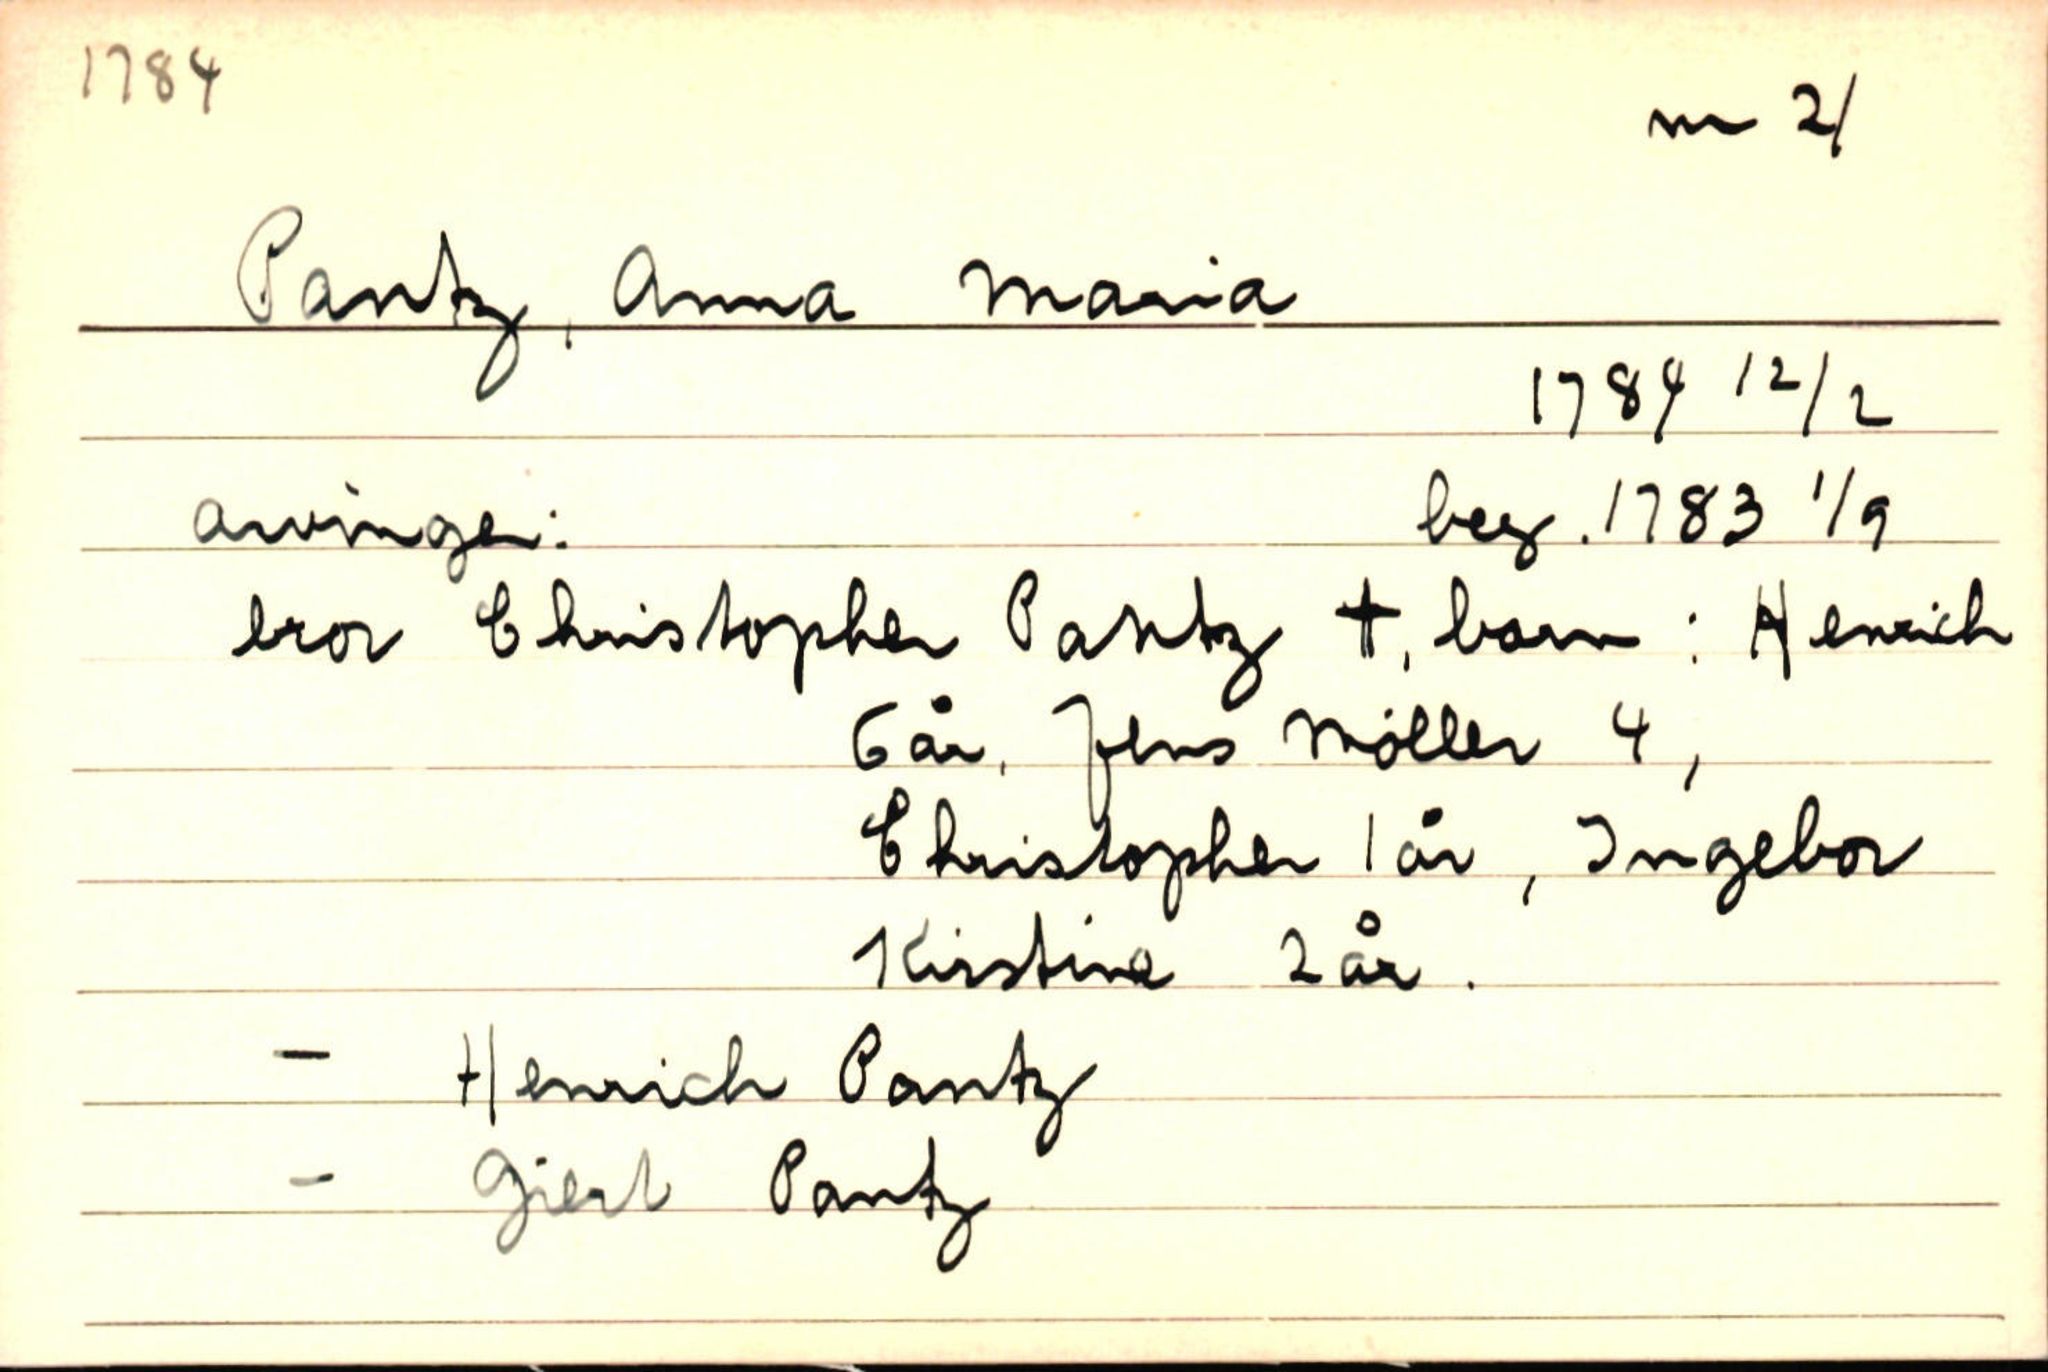 1784
nr 21
Pantz, Anna Maria
1784 12/2
arvinger: beg. 1783 1/9
bror Christopher Pantz †, barn : Henrich
6 år, Jens Møller 4,
Christopher 1 år, Ingebor
Kirstine 2 år.
- Henrich Pantz
- Giert Pantz